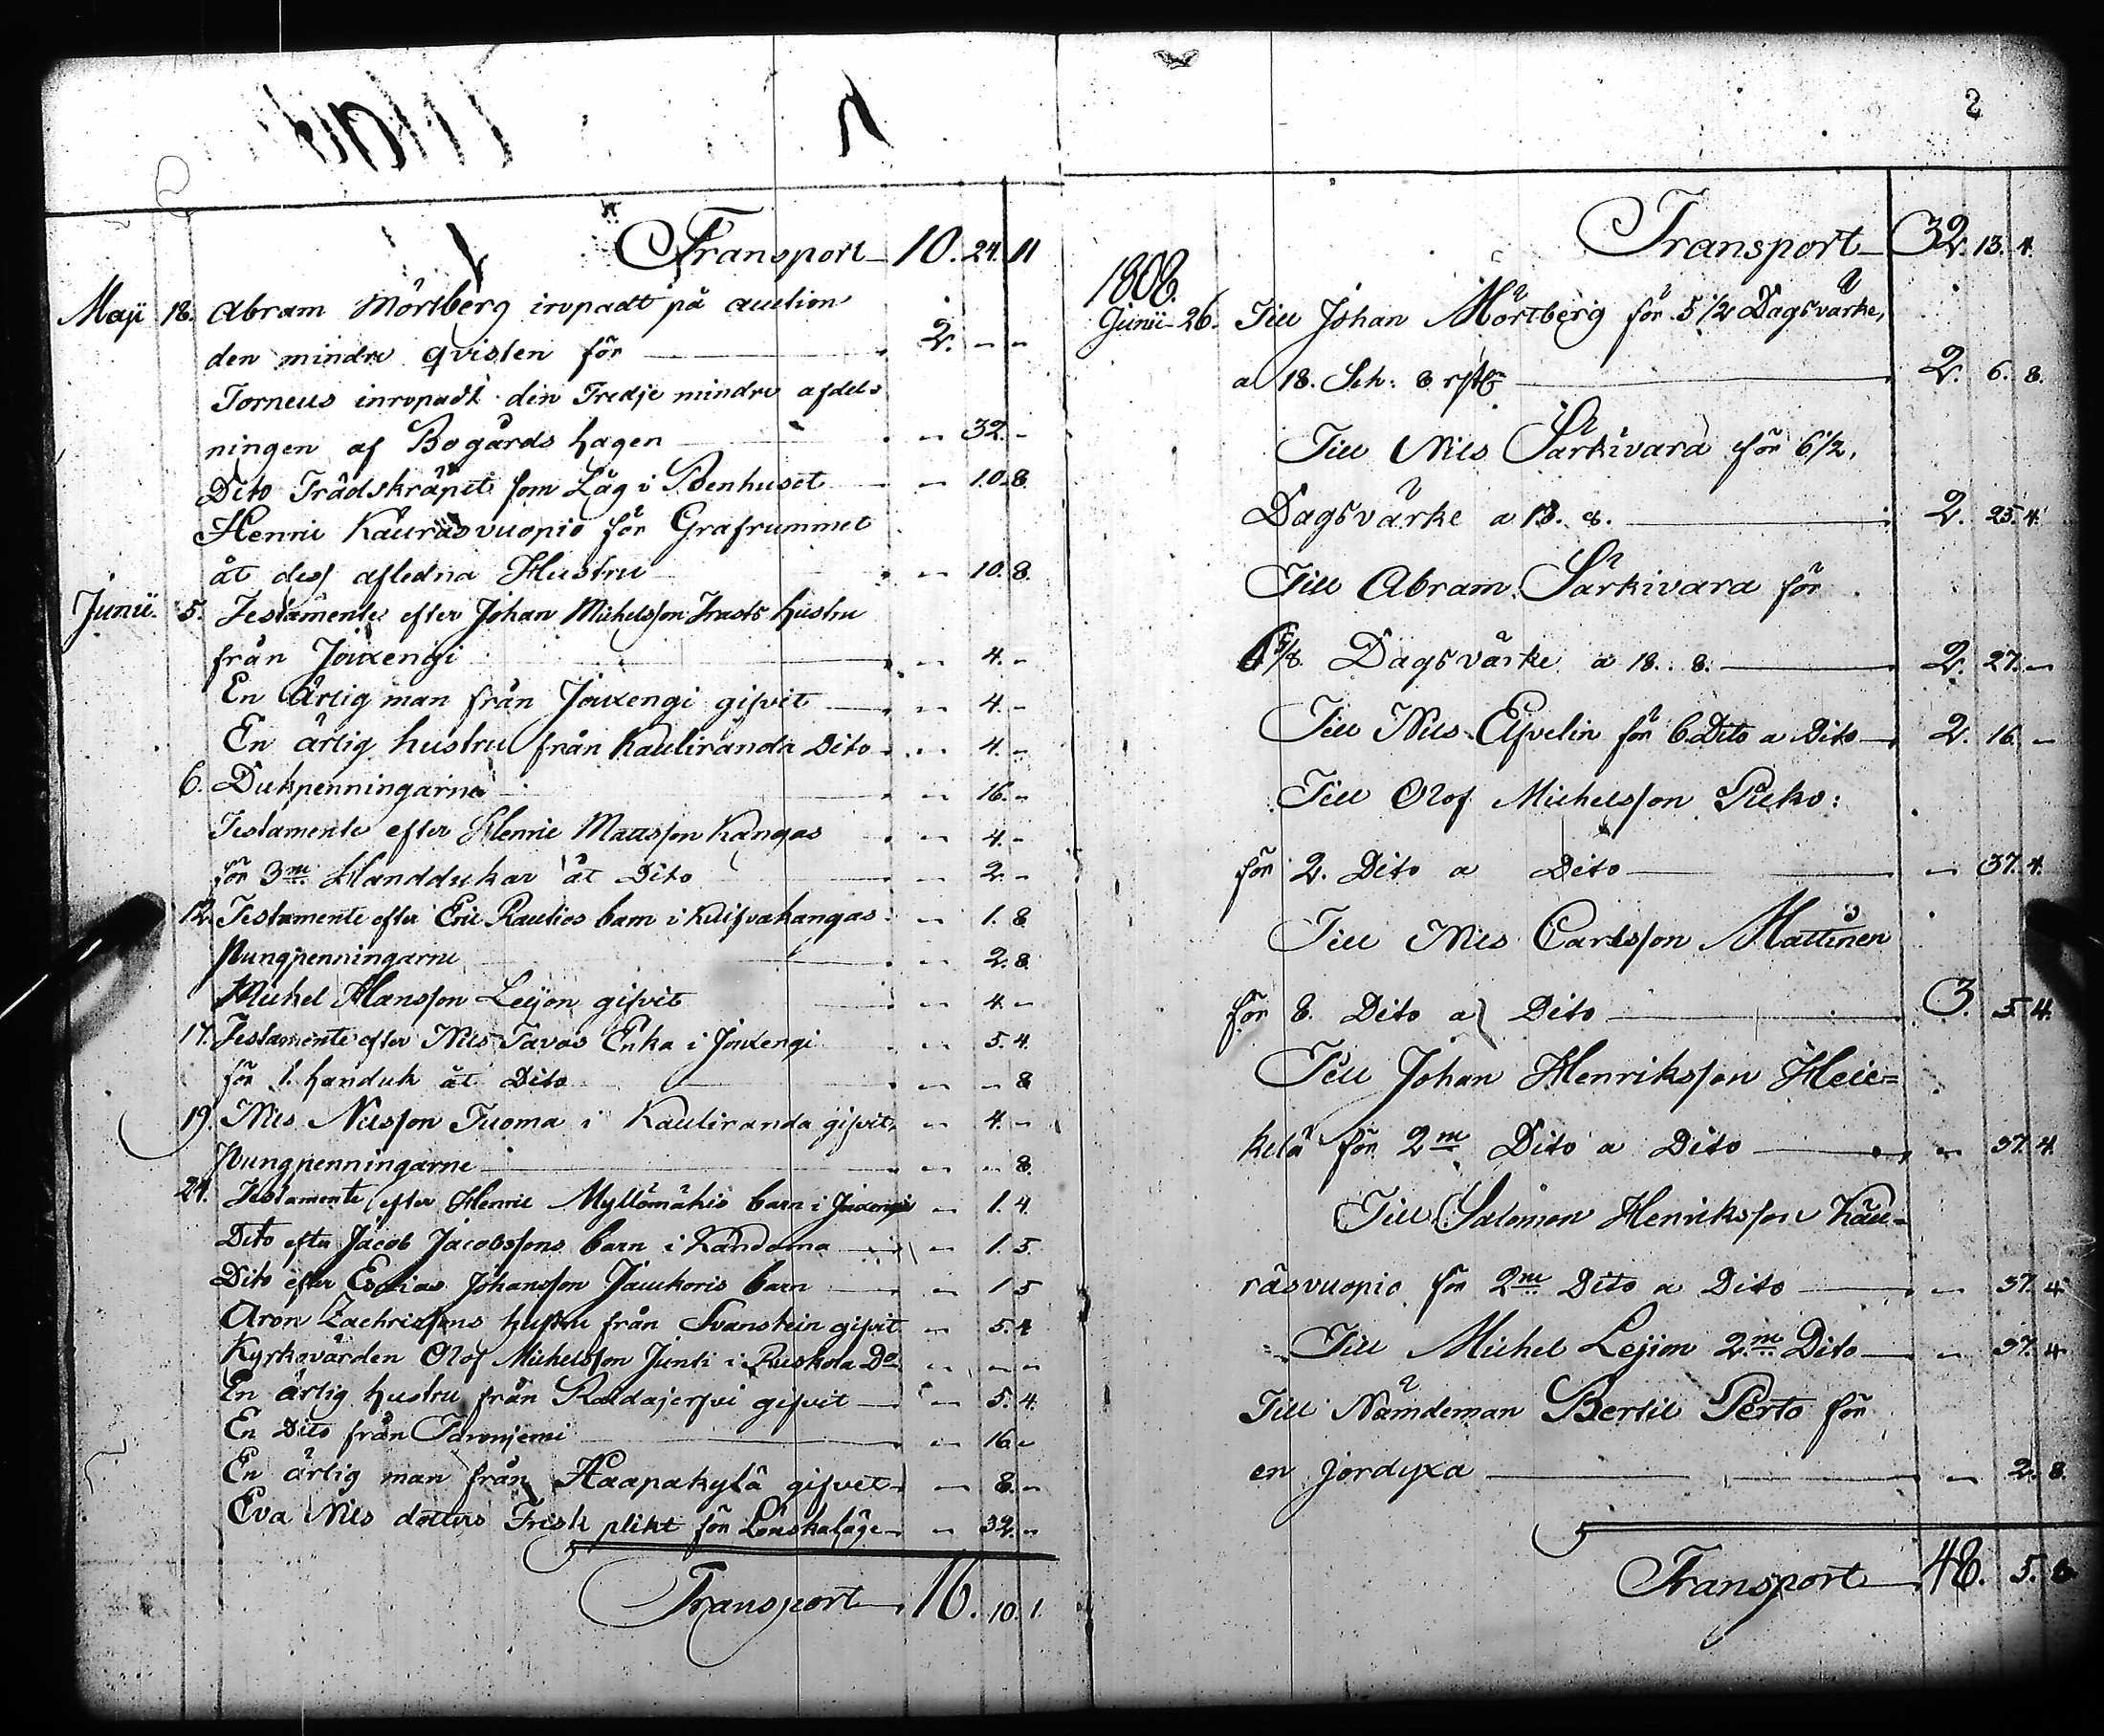 Transport 10. 24. 11
Maji 18. Abram Mörtberg iropadt på auction
den mindre qvisten för 2. - -
Torneus inropadt den Tredje mindre afdel-
ningen af Bogårds hagen - 32. -
Dito Trädskräpet som Låg i Benhuset - 10. 8.
Henric Kauräsvuopio för Grafrummet
åt dess afledna Hustru - 10. 8.
Junii. 5. Testamente efter Johan Michelsson Trasts hustru
från Jouxengi - 4. -
En ärlig man från Jouxengi gifvit - 4. -
En ärlig hustru från Kauliranda Dito - 4. -
6. Dukpenningarne - 16. -
Testamente efter Henric Mattsson Kangas - 4. -
för 3ne Handdukar åt Dito - 2. -
12. Testamente efter Eric Rautios barn i Kuifvakangas - 1. 8
Pungpenningarne - 2. 8.
Michel Hansson Leijon gifvit - 4. -
17. Testamente efter Nils Tavas Enka i Jouxengi - 5. 4.
för 1. handuk åt Dito - - 8
19. Nils Nilsson Tuoma i Kauliranda gifvit - 4. -
Pungpenningarne - - 8.
24. Testamente efter Henric Myllömäkis barn i Jouxengi - 1. 4.
Dito efter Jacob Jacobssons barn i Kandama - 1. 5.
Dito efter Esaias Johansson Jauhoris barn - 1 5
Aron Zachrissons hustru från Svanstein gifvit - 5. 4
Kyrkovärden Olof Michelsson Junti i Ruskola Do - - -
En ärlig hustru från Raldajerfvi gifvit - 5. 4.
En Dito från - 16. -
En ärlig man från Haapakylä gifvet - 8. -
Eva Nils dotters Frisk plikt för Lönskaläge - 32. -
Transport 16. 10. 1.
2
Transport 32. 13. 4.
1808.
Junii 26. Till Johan Mörtberg för 5 1/2 Dagsvärke,
a 18. Sch: 8 rst 2. 6. 8.
Till Nils Särkivara för 6 1/2,
Dagsvärke a 18. 8. 2. 25. 4.
Till Abram Särkivara för
6 5/8. Dagsvärke a 18.. 8. 2. 27. -
Till Nils Elfvelin för 6 Dito a Dito 2. 16. -
Till Olof Michelsson Picko:
för 2. Dito a Dito - 37. 4.
Till Nils Carlsson Mattinen
för 8. Dito a Dito 3. 5. 4.
Till Johan Henriksson Heic=
kelä för 2ne Dito a Dito - 37. 4.
Till Salomon Henriksson Kau=
räsvuopio för 2ne Dito a Dito - 37. 4
Till Michel Lejion 2ne Dito - 37. 4
Till Nämdeman Bertil Perto för
en jordyxa - 2. 8.
Transport 48. 5. 8